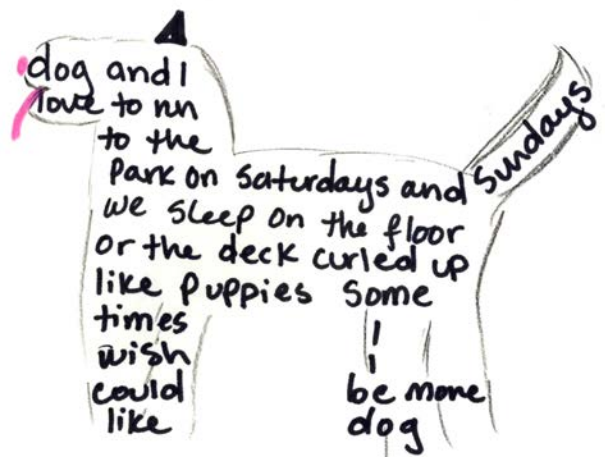 dog and I
love to run
to the
Park on Saturdays and Sundays
we sleep on the floor
or the deck curled up
like puppies some
times I
wish I
could be more
like dog